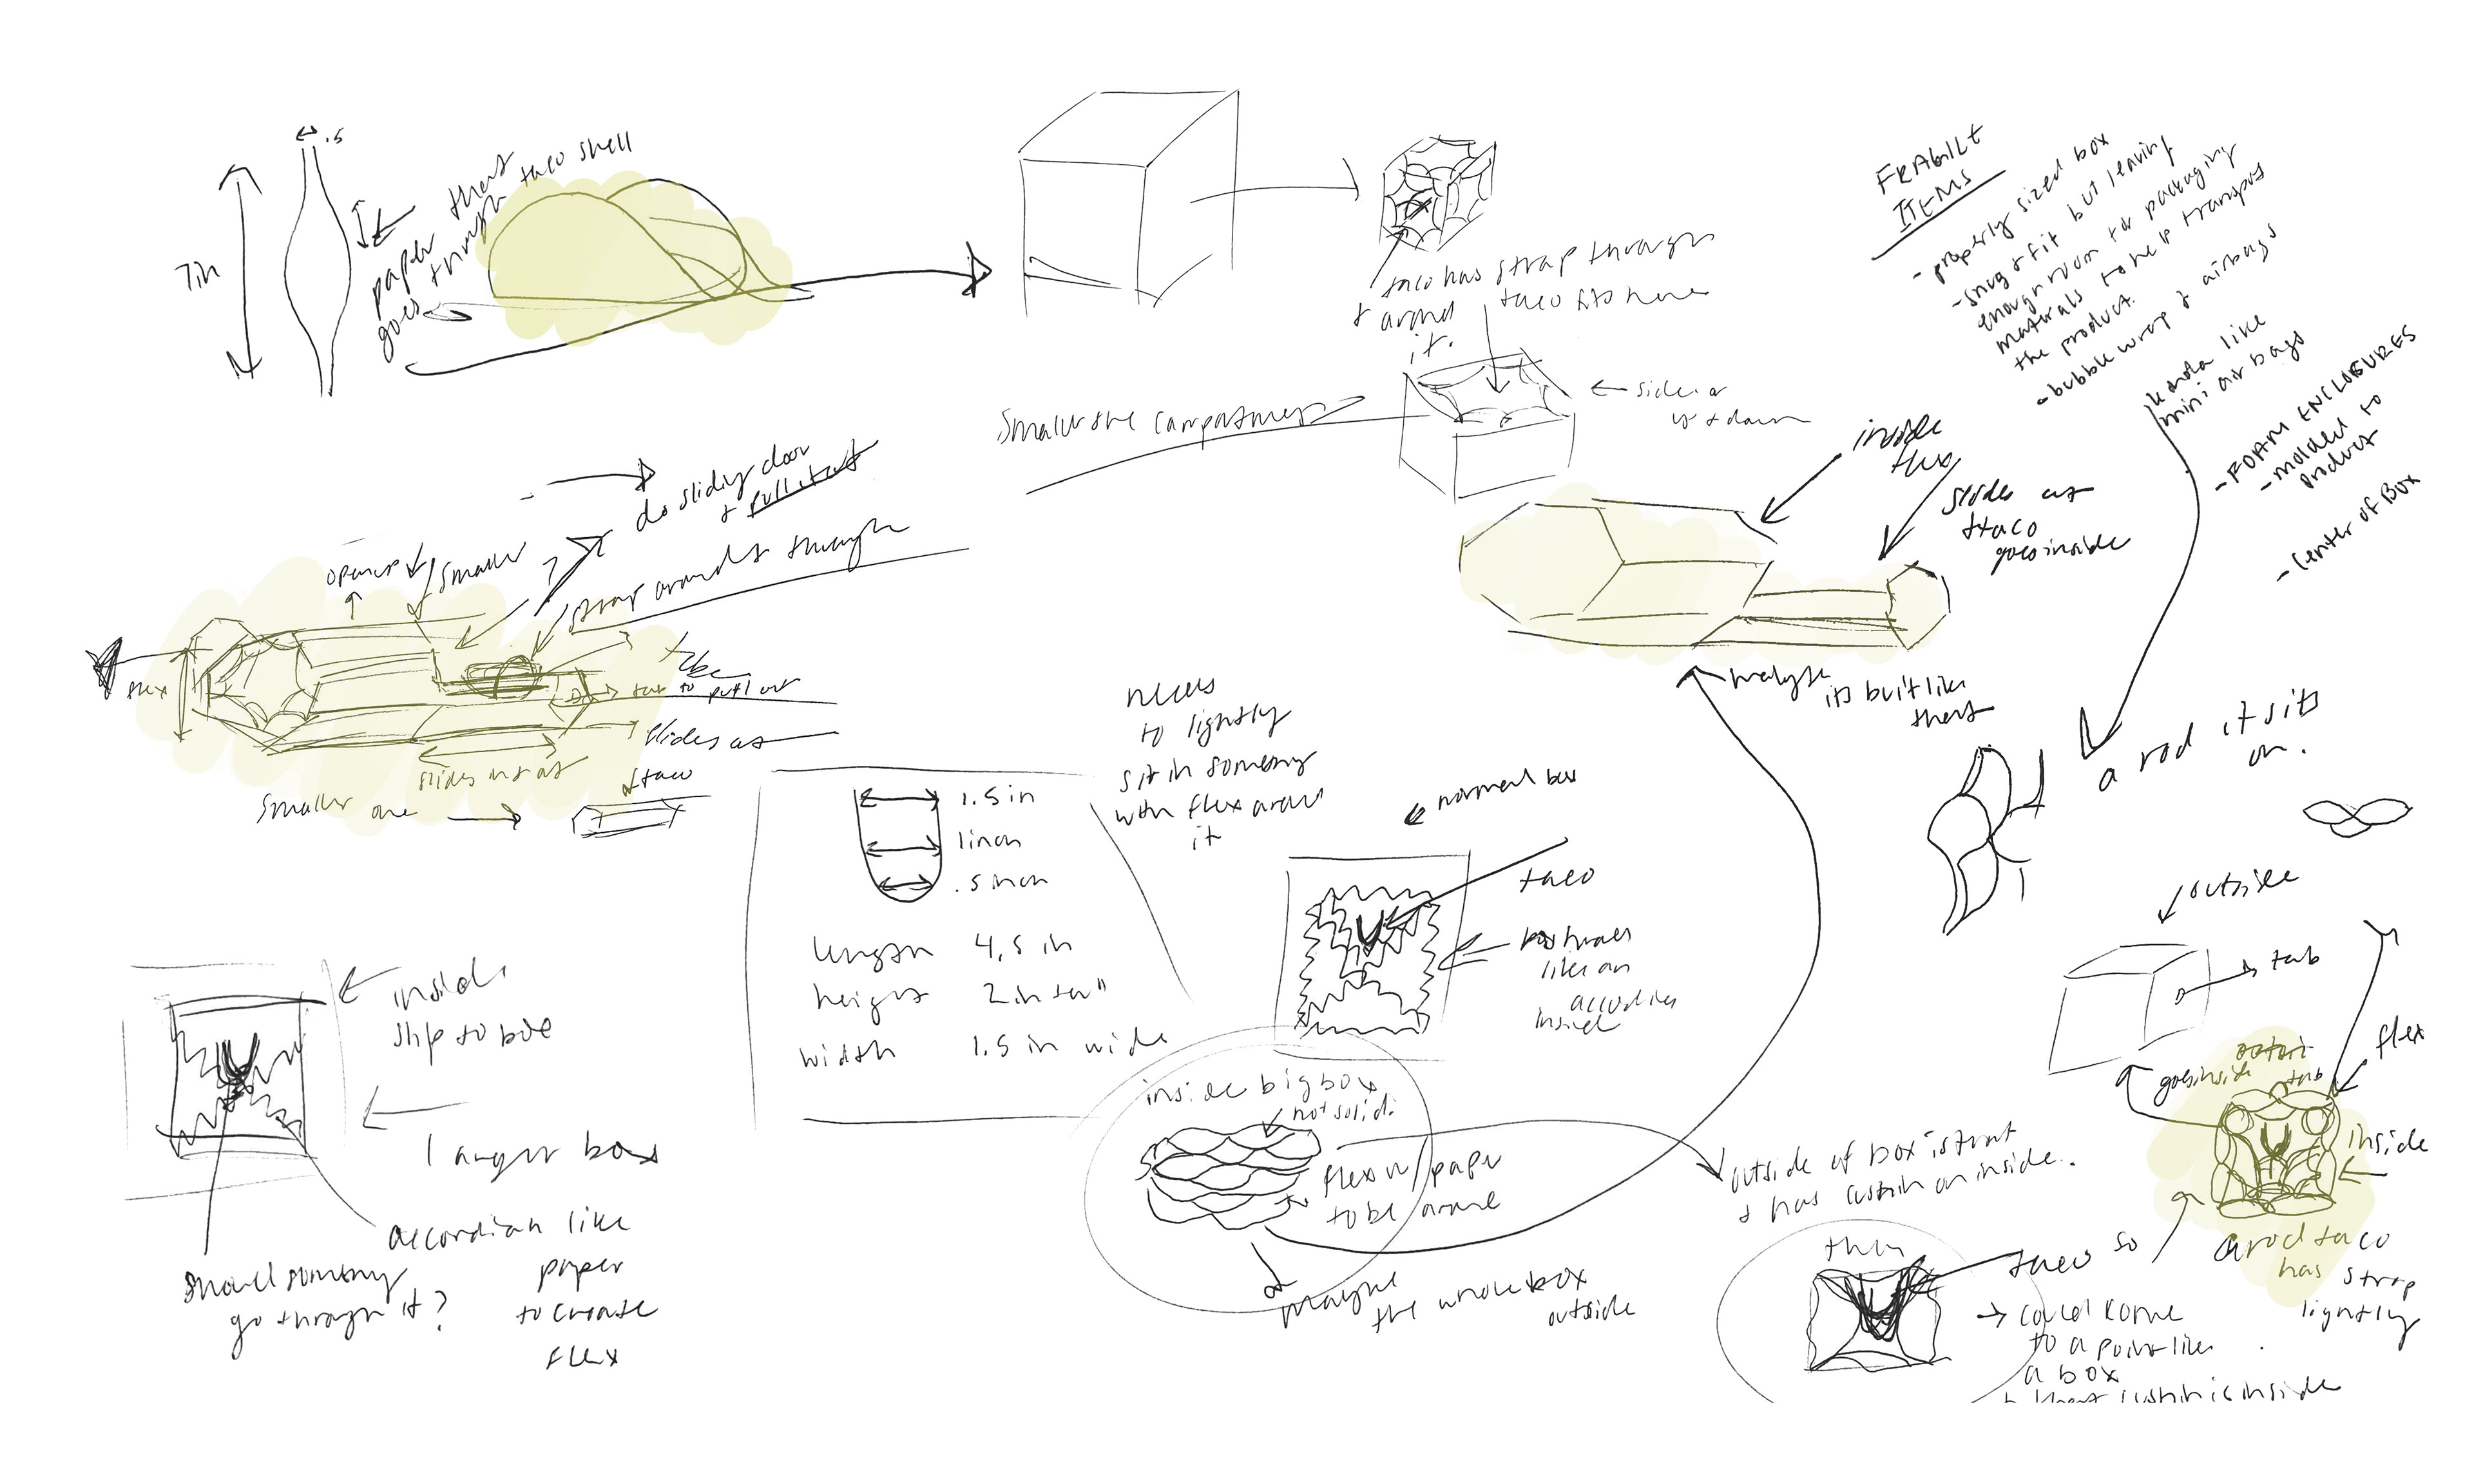 .5
7in
paper that
goes through taco shell
taco has strap through
& around
it.
taco fits here
side or
up & down
smaller the compartment
FRAGILE
ITEMS
- properly sized box
- snug fit but leaving
enough room for packaging
materials to help transport
the product.
- bubble wrap & airbags
kinda like
mini air bags
- FOAM ENCLOSURES
- molded to
product
- center of BOX
do sliding door
& pull it out
open up
smaller
?
strap around & through
flex
tab to pull out
slides out
slides in & out
taco
smaller one
inside
flex
slides out
taco
goes inside
maybe
its built like
that
a rod it sits
on.
needs
to lightly
sit in
with flex around
it
1.5 in
1 inch
.5 inch
length 4.5 in
height 2 in tall
width 1.5 in wide
normal box
taco
like an
inside
inside
larger box
accordian like
paper
to create
flex
go through it?
inside big box
not solid
flex w/ paper
to be around
maybe
the whole box
outside
outside of box is that
& has cushion on inside.
outside
tab
flex
goes inside
tab
inside
a rod taco
has strap
lightly
taco so
could come
to a point like
a box
that cushion is inside